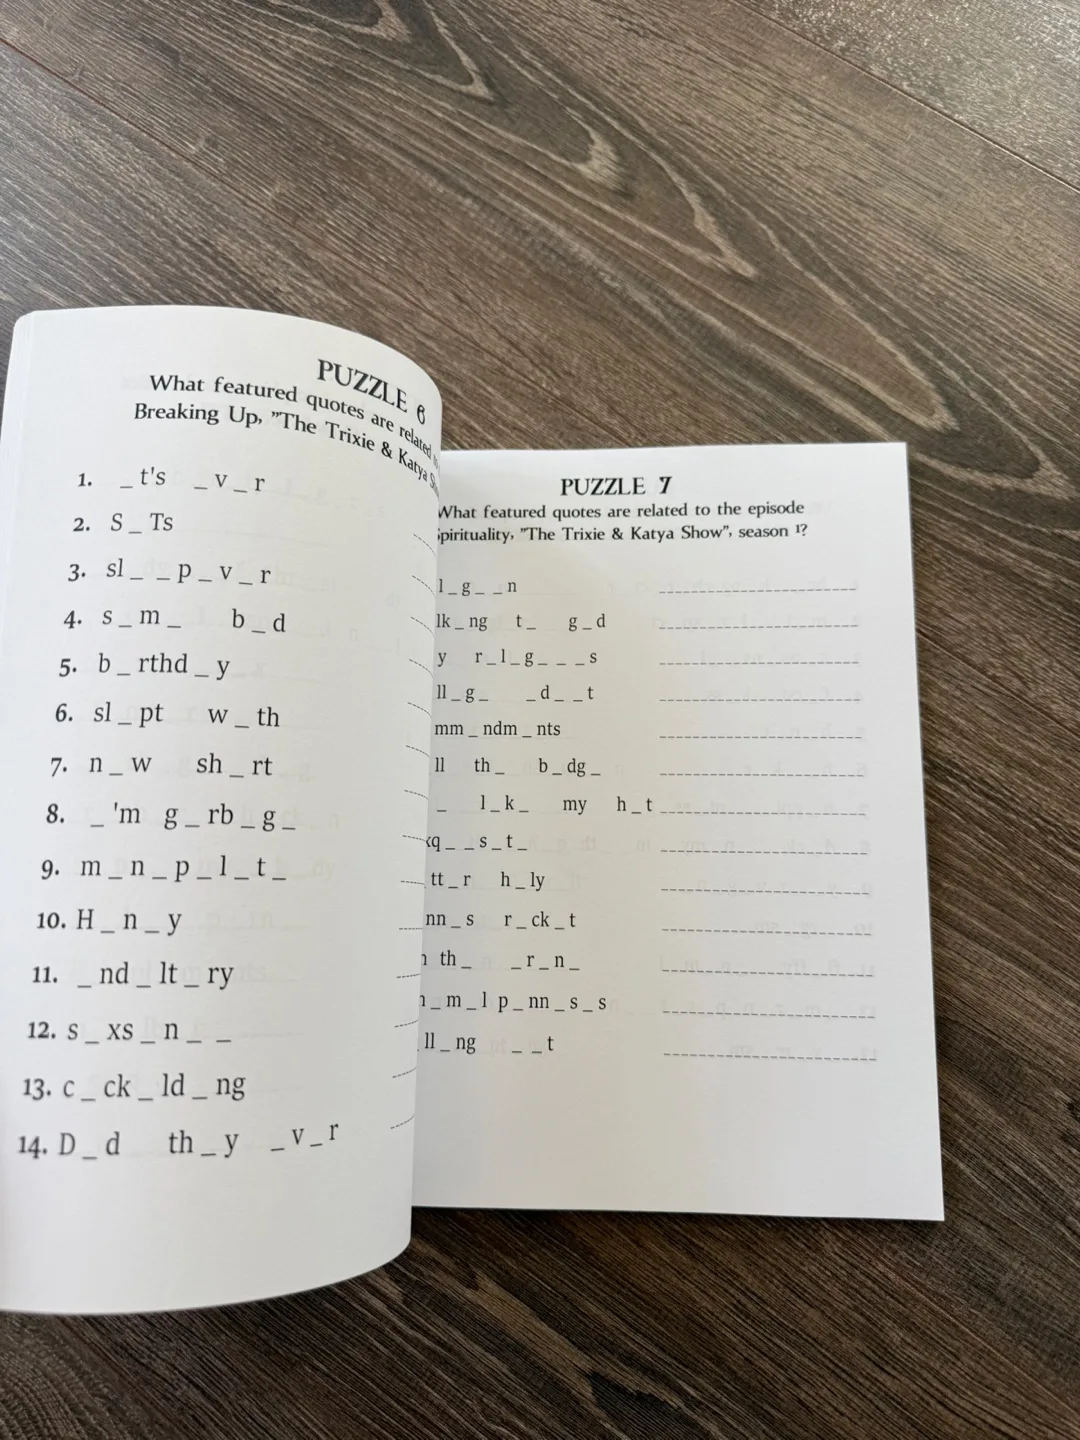 PUZZLE 6
What featured quotes are related
Breaking Up, "The Trixie & Katya
1. _ t's _ v _ r
2. S _ Ts
3. sl _ _ p _ v _ r
4. s _ m _ b _ d
5. b _ rthd _ y
6. sl _ pt w _ th
7. n _ w sh _ rt
8. _ 'm g _ rb _ g _
9. m _ n _ p _ l _ t _
10. H _ n _ y
11. _ nd _ lt _ ry
12. s _ xs _ n _ _
13. c _ ck _ ld _ ng
14. D _ d th _ y _ v _ r
PUZZLE 7
What featured quotes are related to the episode
pirituality, "The Trixie & Katya Show", season 1?
l _ g _ _ n
lk _ ng t _ g _ d
y r _ l _ g _ _ _ s
ll _ g _ _ d _ _ t
mm _ ndm _ nts
ll th _ b _ dg _
_ l _ k _ my h _ t
xq _ _ s _ t _
tt _ r h _ ly
nn _ s r _ ck _ t
th _ _ r _ n _
_ m _ l p _ nn _ s _ s
ll _ ng _ _ t